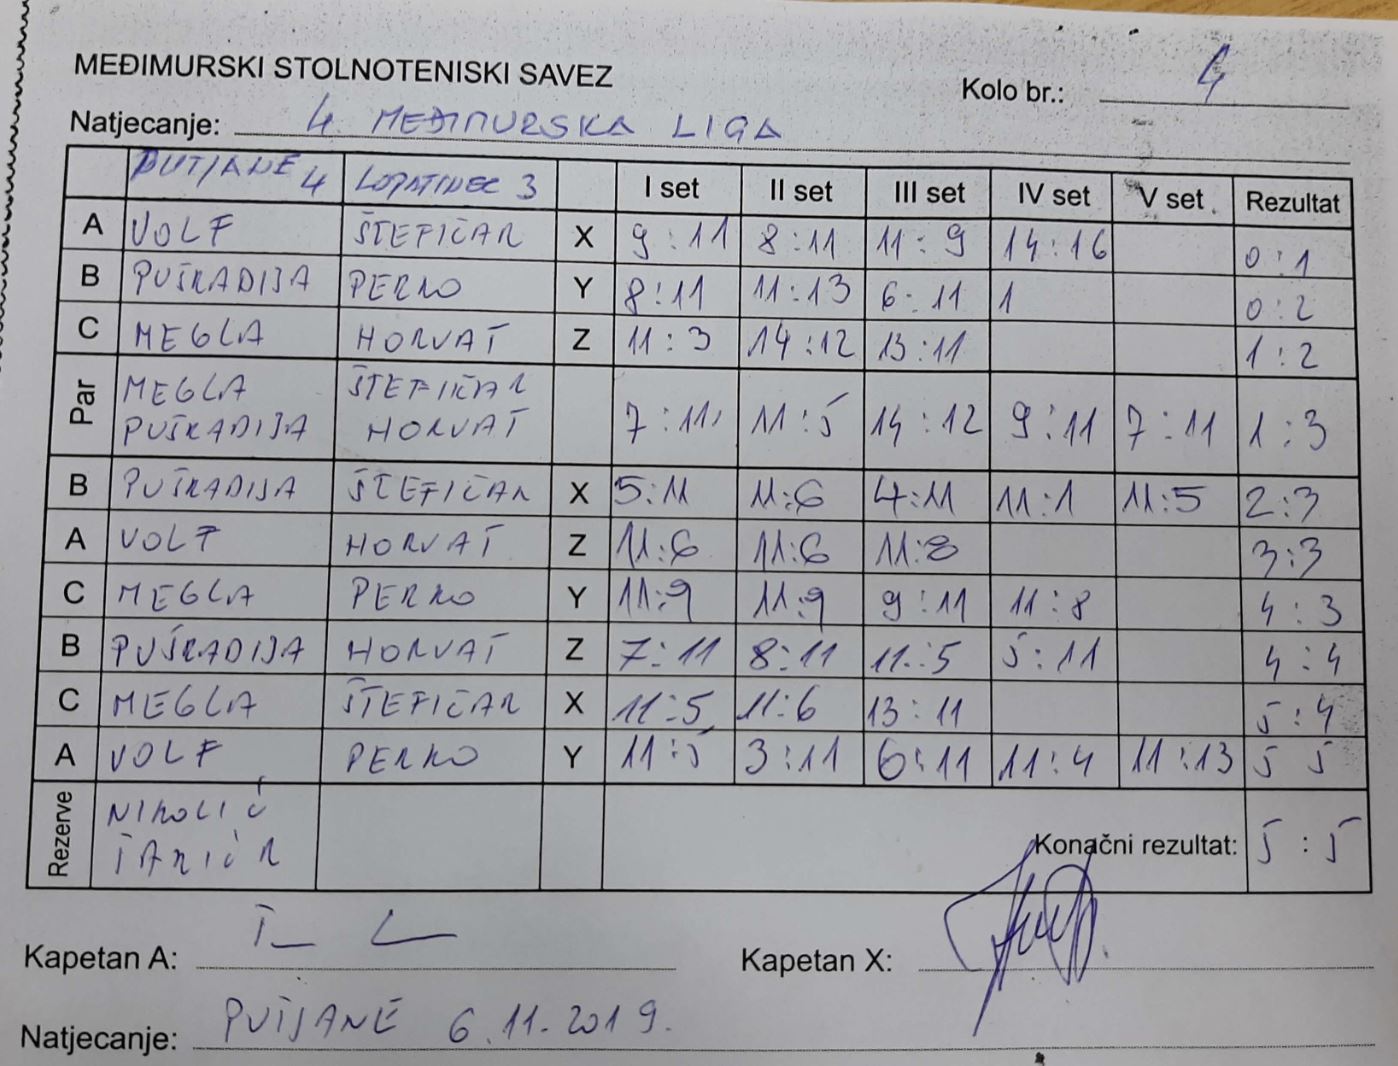 MEĐIMURSKI STOLNOTENISKI SAVEZ
Kolo br.: 4
Natjecanje: 4. MEĐIMURSKA LIGA
PUTJANE 4 LOPATINEC 3 I set II set III set IV set V set Rezultat
A VOLF ŠTEFIČAR X 9:11 8:11 11:9 14:16 0:1
B PUŠKADIJA PERKO Y 8:11 11:13 6:11 1 0:2
C MEGLA HORVAT Z 11:3 14:12 13:11 1:2
Par MEGLA ŠTEFIČAR
PUŠKADIJA HORVAT 7:11 11:5 14:12 9:11 7:11 1:3
B PUŠKADIJA ŠTEFIČAR X 5:11 11:6 4:11 11:1 11:5 2:3
A VOLF HORVAT Z 11:6 11:6 11:8 3:3
C MEGLA PERKO Y 11:9 11:9 9:11 11:8 4:3
B PUŠKADIJA HORVAT Z 7:11 8:11 11:5 5:11 4:4
C MEGLA ŠTEFIČAR X 11:5 11:6 13:11 5:4
A VOLF PERKO Y 11:5 3:11 6:11 11:4 11:13 5 5
Rezerve NIKOLIĆ
Konačni rezultat: 5:5
Kapetan A: Kapetan X:
Natjecanje: 6.11.2019.